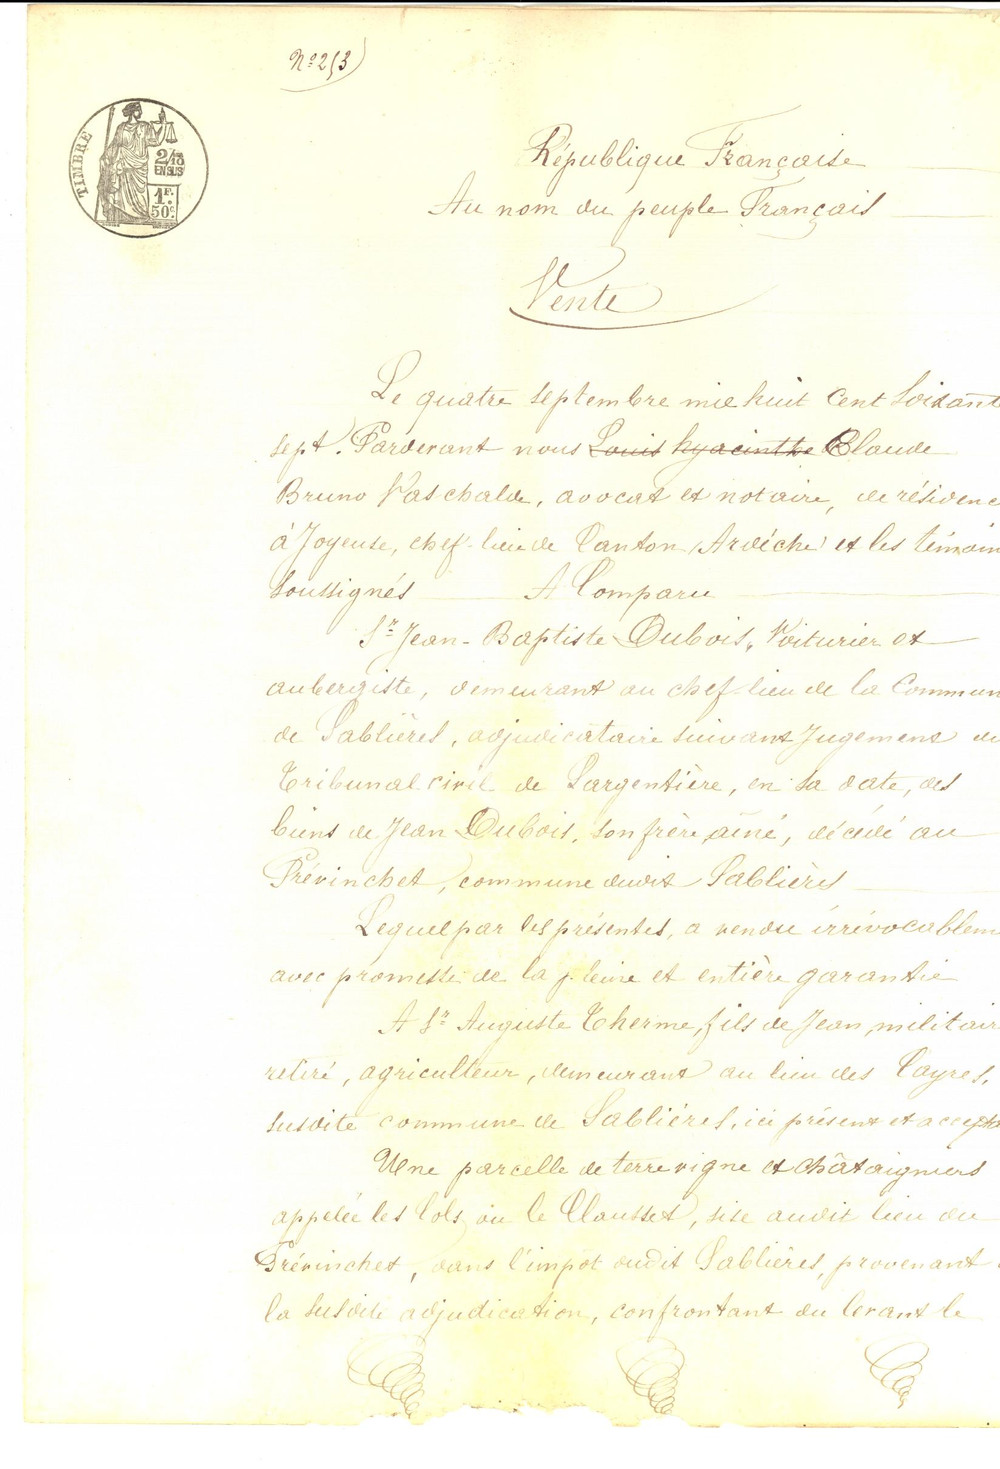 N° 253
TIMBRE
2/10
EN SUS
1F.
50c.
République Française
Au nom du peuple Français
Vente
Le quatre septembre mil huit cent soixant
sept. Pardevant nous Louis hyacinthe Claude
Bruno Vaschalde, avocat et notaire, de résidenc
à Joyeuse, chef-lieu de Canton (Ardèche) et les témoin
soussignés A Comparu
Sr Jean-Baptiste Dubois, Voiturier et
aubergiste, demeurant au chef-lieu de la Commun
de Sablières, adjudicataire suivant Jugement du
Tribunal civil de Largentière, en sa date, des
biens de Jean Dubois, son frère aîné, décédé au
Prévinchet, commune dudit Sablières
Lequel par les présentes, a vendu irrévocablem
avec promesse de la pleine et entière garantie
A Sr Auguste Therme, fils de Jean, militair
retiré, agriculteur, demeurant au lieu des Cayres,
susdite commune de Sablières, ici présent et accepta
Une parcelle de terre vigne et châtaigniers
appelée les Cols ou le Clausset, sise audit lieu du
Prévinchet, dans l'impôt dudit Sablières, provenant
la susdite adjudication, confrontant du levant le